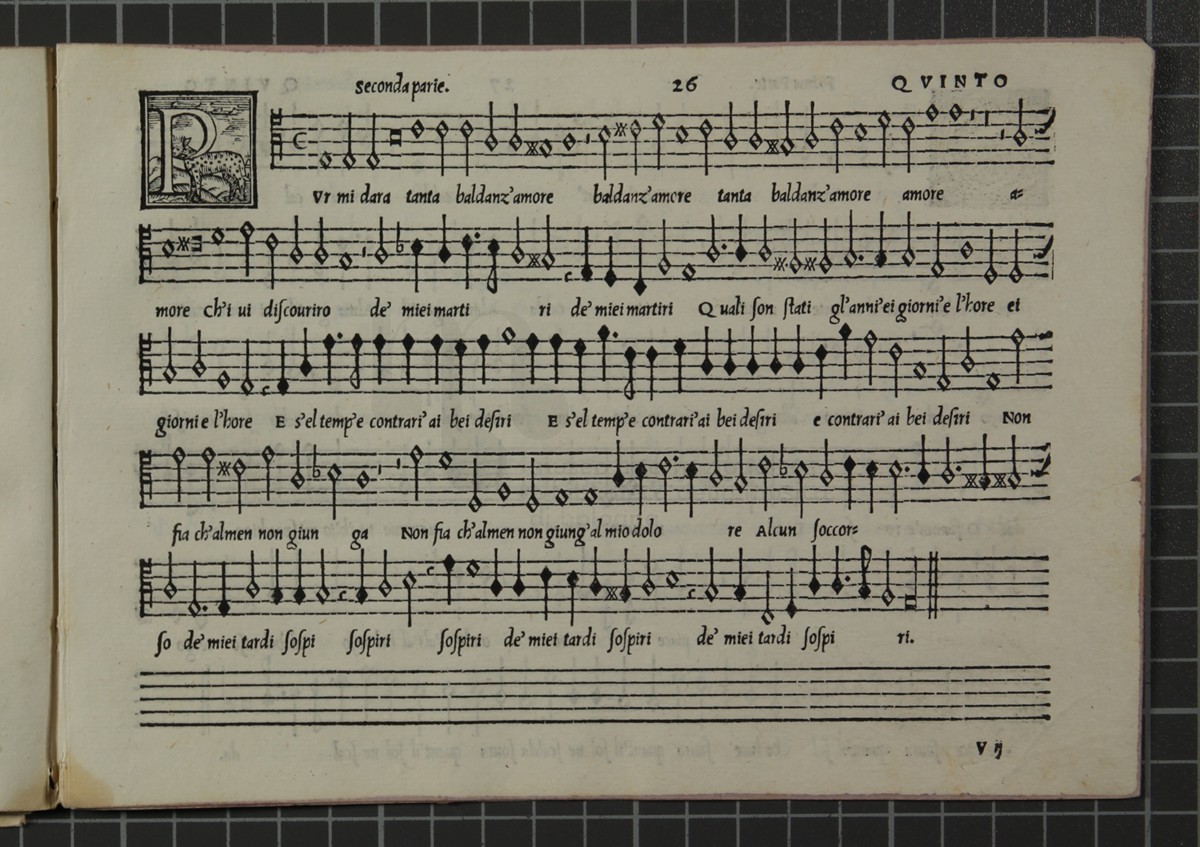 Seconda parte. 26 QVINTO
PVr mi dara tanta baldanz'amore baldanz'amore tanta baldanz'amore amore a-
more ch'i ui discouriro de' miei marti ri de' miei martiri Quali son stati gl'anni'ei giorni'e l'hore ei
giorni e l'hore E s'el temp'e contrari'ai bei desiri E s'el temp'e contrari'ai bei desiri e contrari'ai bei desiri Non
fia ch'almen non giun ga Non fia ch'almen non giung'al mio dolo re Alcun soccor-
so de' miei tardi sospi sospiri sospiri de' miei tardi sospiri de' miei tardi sospi ri.
V ij